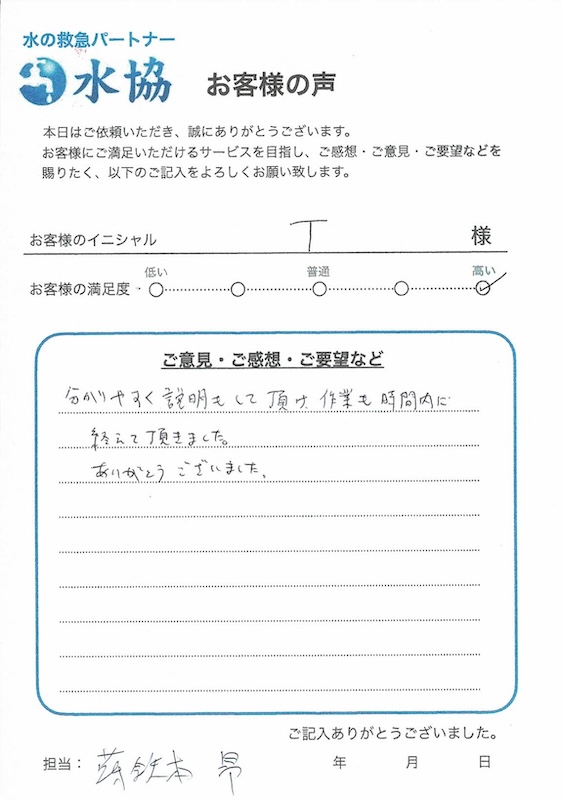 水の救急パートナー
水協 お客様の声
本日はご依頼いただき、誠にありがとうございます。
お客様にご満足いただけるサービスを目指し、ご感想・ご意見・ご要望などを
賜りたく、以下のご記入をよろしくお願い致します。
お客様のイニシャル T 様
低い 普通 高い
お客様の満足度
ご意見・ご感想・ご要望など
分かりやすく説明もして頂け、作業も時間内に
終えて頂きました。
ありがとうございました。
ご記入ありがとうございました。
担当： 年 月 日